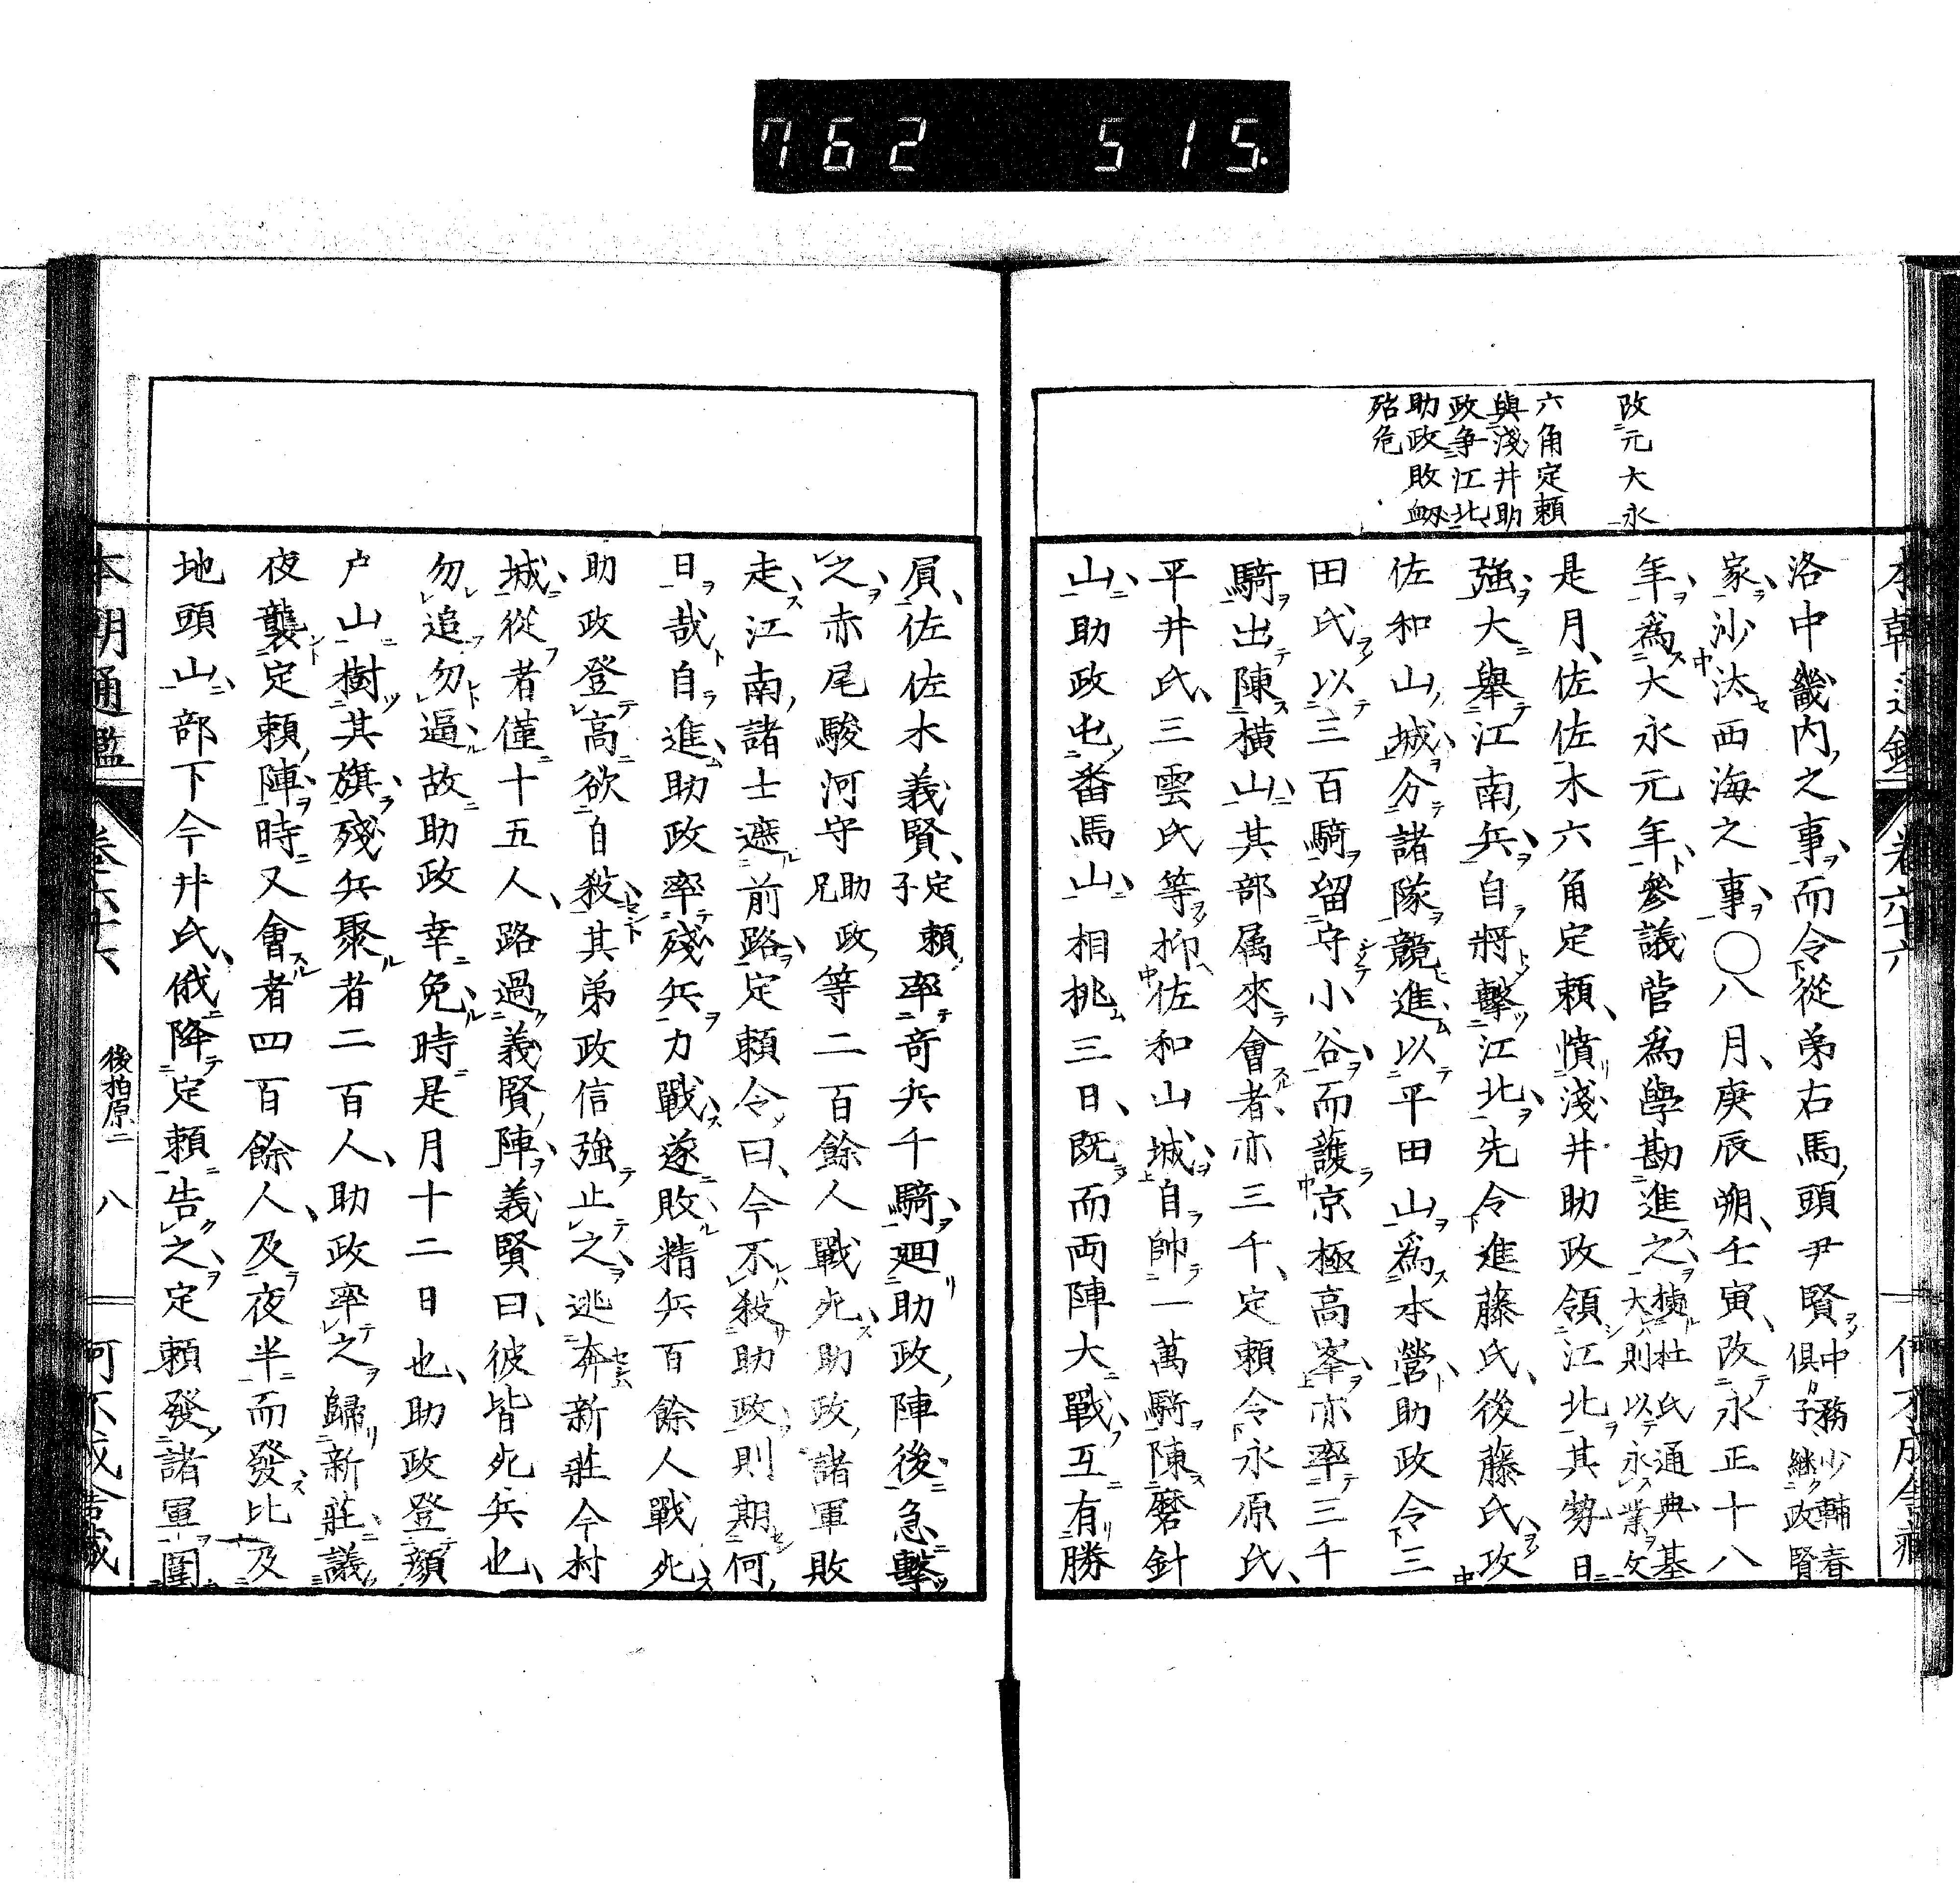 762 515.
改元大永
六角定頼
與淺井助
政争江北
助政敗衂
殆危
洛中畿内之事而令從弟右馬頭尹賢中務少輔春俱子継政賢
家沙汰西海之事○八月庚辰朔壬寅改永正十八
年為大永元年參議菅為學勘進之㨿杜氏通典基大則以永業攵
是月佐佐木六角定頼憤淺井助政領江北其勢日
強大舉江南兵自將擊江北先令進藤氏後藤氏攻
佐和山城分諸隊競進以平田山為本營助政令三
田氏以三百騎留守小谷而護京極高峯亦率三千
騎出陳橫山其部属來會者亦三千定頼令永原氏
平井氏三雲氏等抑佐和山城自帥一萬騎陳磨針
山助政屯番馬山相挑三日既而両陣大戰互有勝
屓佐佐木義賢定頼子率竒兵千騎廻助政陣後急擊
之赤尾駿河守助政兄等二百餘人戰死助政諸軍敗
走江南諸士遮前路定頼令曰今不殺助政則期何
日哉自進助政率殘兵力戰遂敗精兵百餘人戰死
助政登高欲自殺其弟政信強止之逃奔新莊今村
城從者僅十五人路過義賢陣義賢曰彼皆死兵也
勿追勿逼故助政幸免時是月十二日也助政登顔
户山樹其旗殘兵聚者二百人助政率之歸新莊議
夜襲定頼陣時又會者四百餘人及夜半而發比及
地頭山部下今井氏俄降定頼告之定頼發諸軍圍
本朝通鑑 卷六十六 後柏原二 八